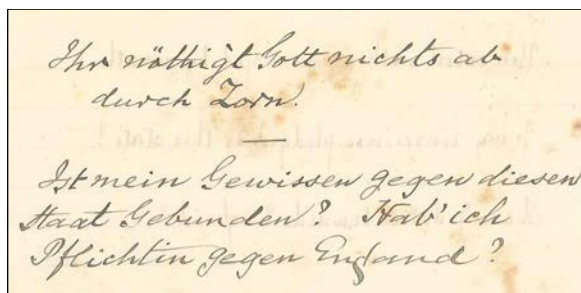 Ihr nöthigt Gott nichts ab
durch Zorn.
Ist mein Gewissen gegen diesen
Staat Gebunden? Hab' ich
Pflichtin gegen England?